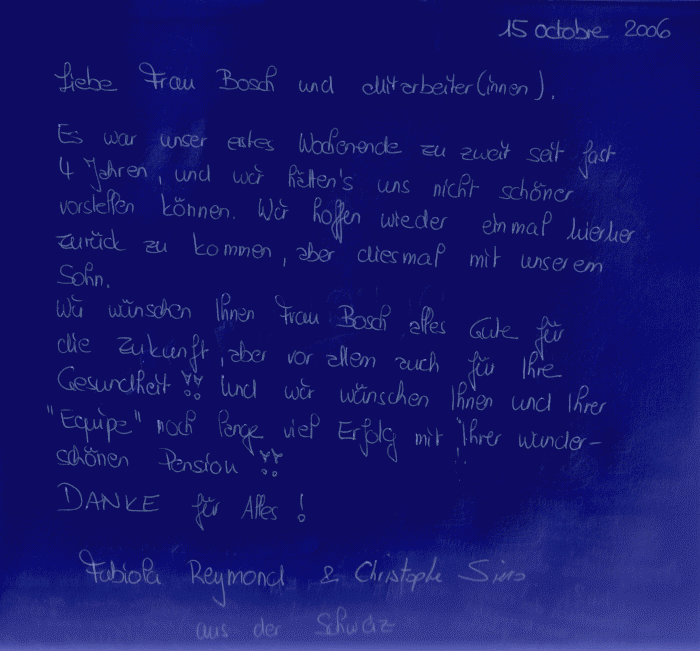 15 octobre 2006
Liebe Frau Bosch und Mitarbeiter(innen),
Es war unser erstes Wochenende zu zweit seit fast
4 Jahren, und wir hätten's uns nicht schöner
vorstellen können. Wir hoffen wieder einmal hierher
zurück zu kommen, aber diesmal mit unserem
Sohn.
Wir wünschen Ihnen Frau Bosch alles Gute für
die Zukunft, aber vor allem auch für Ihre
Gesundheit!! Und wir wünschen Ihnen und Ihrer
"Equipe" noch lange viel Erfolg mit Ihrer wunder-
schönen Pension!!
DANKE für Alles!
Fabiola Reymond & Christophe
aus der Schweiz